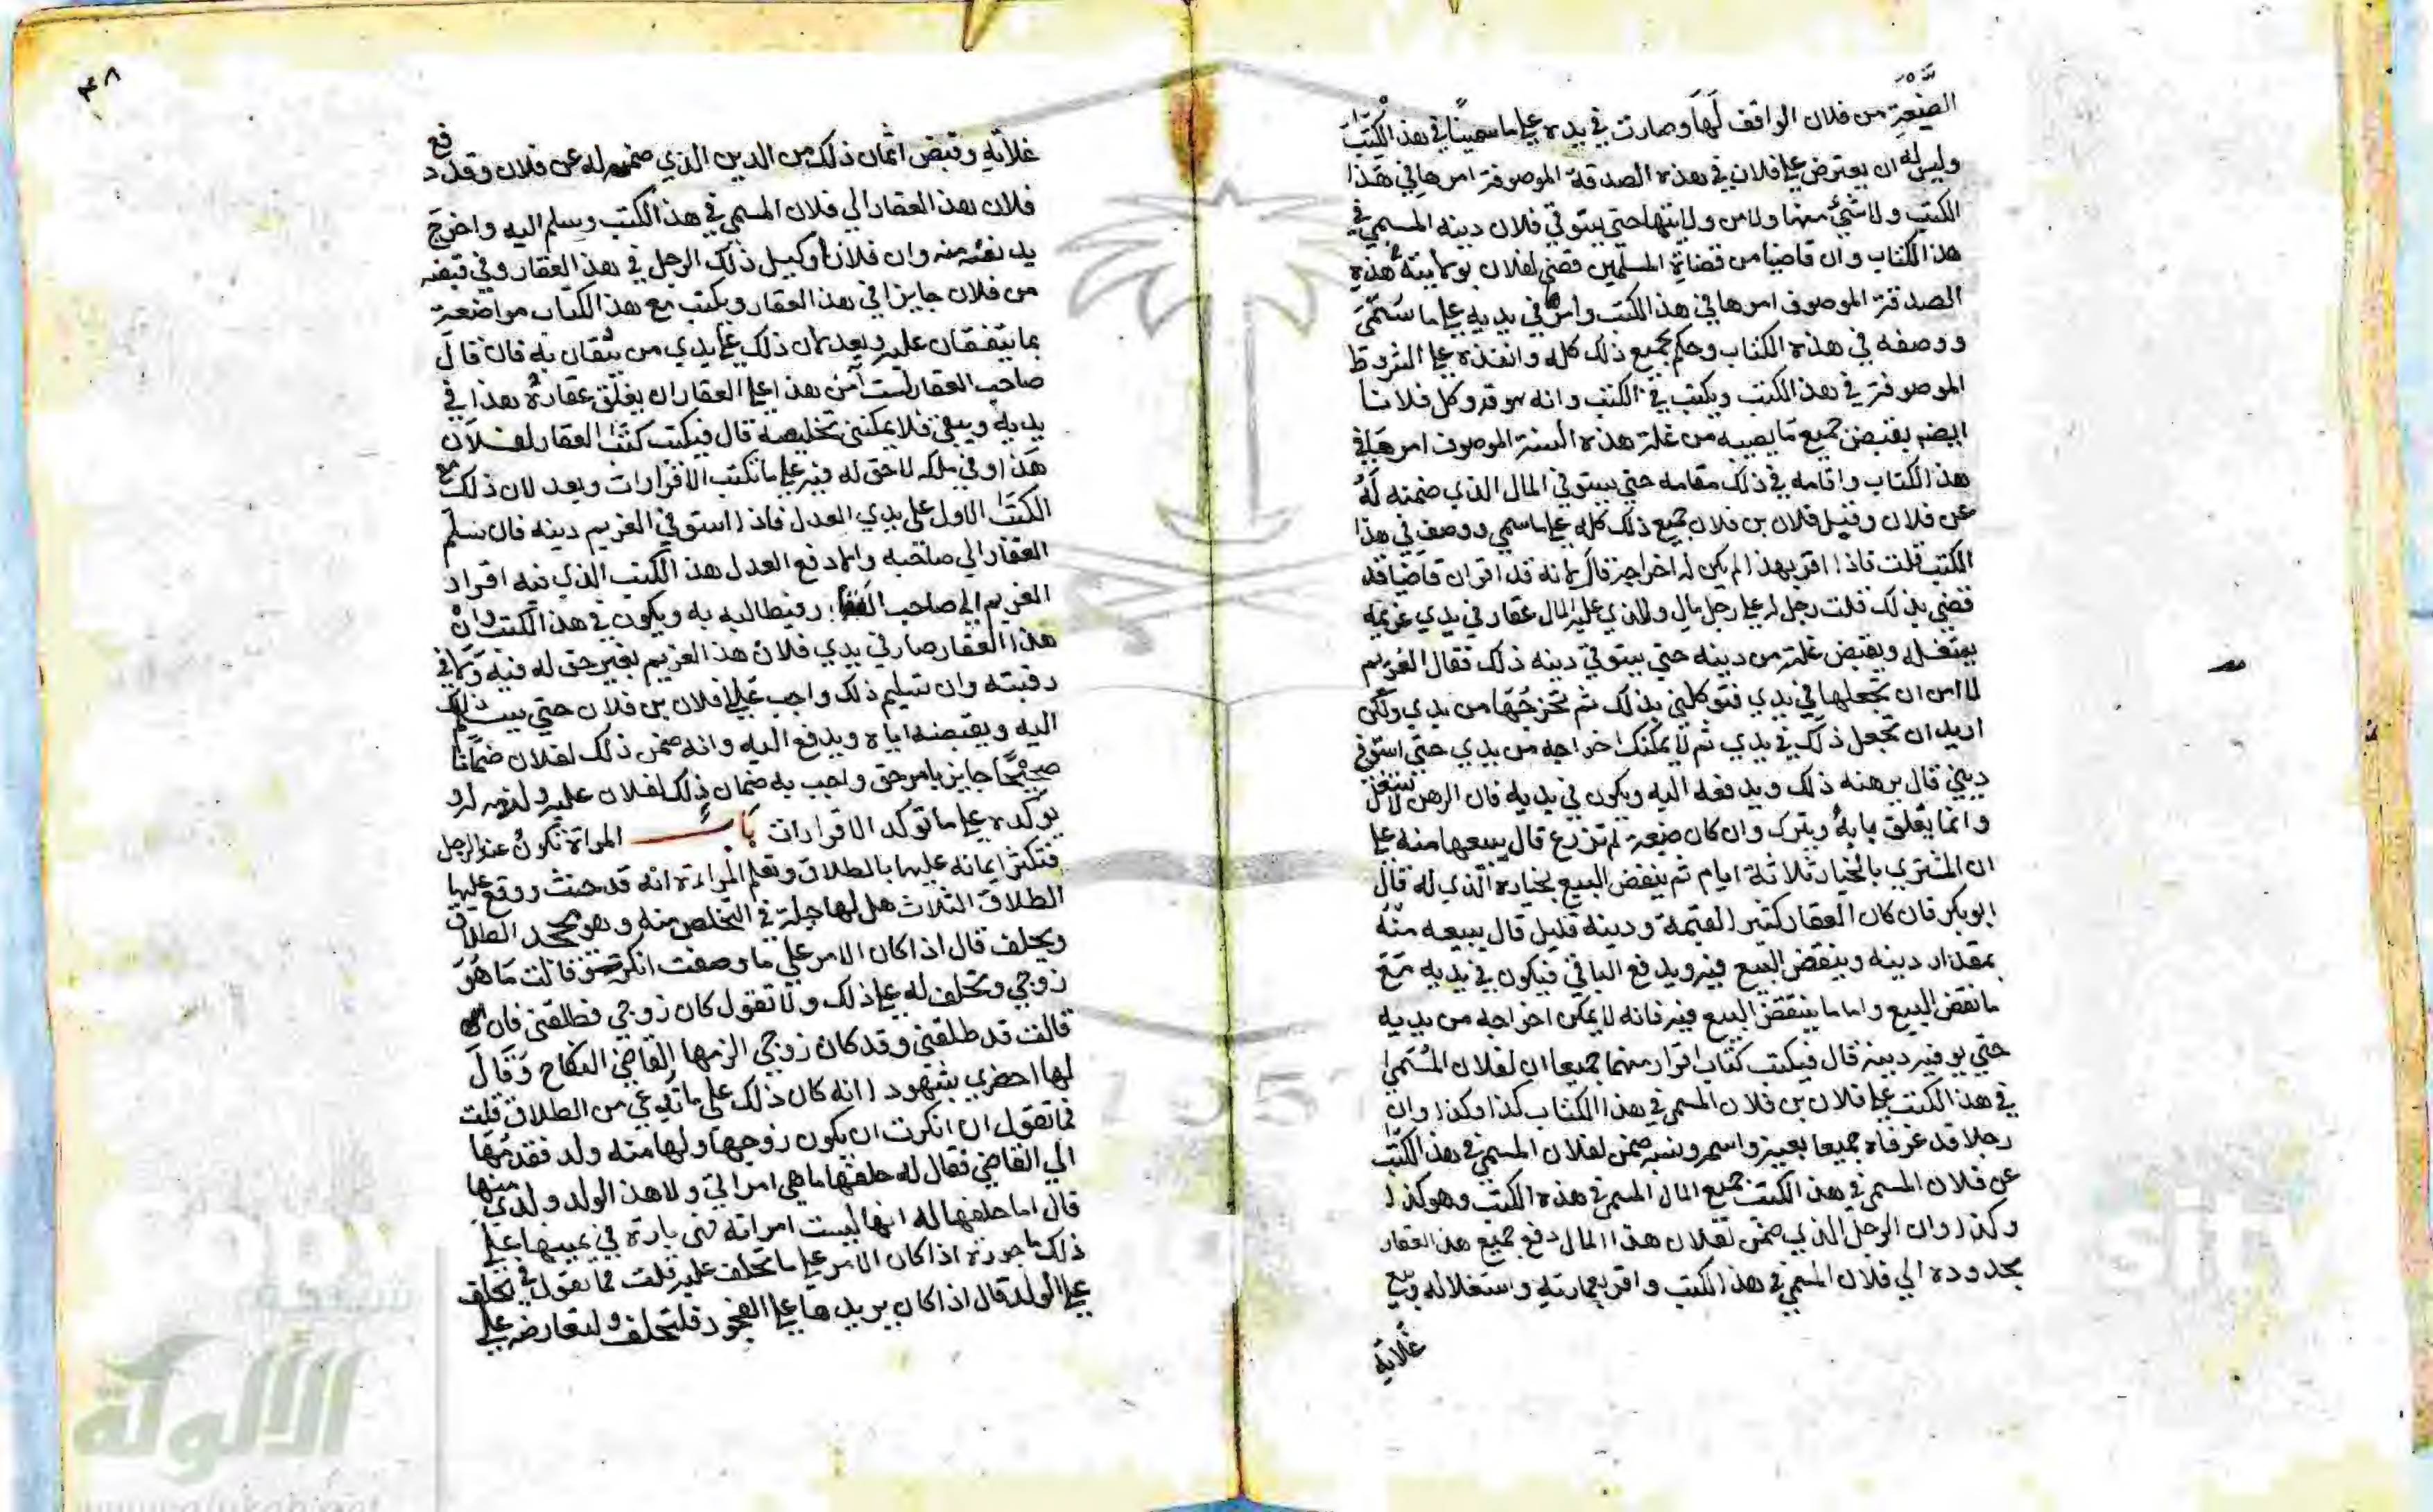 الضيعة من فلان الواقف لها وصارت في يده علي ما سمينا في هذا الكتب
وليس له ان يعترض علي فلان في هذه الصدقة الموصوفة امرها في هذا
الكتب ولا شيء منها ولا من ولايتها حتي يستوفي فلان دينه المسمي في
هذا الكتاب وان قاضيا من قضاة المسلمين قضي لفلان بولايته في هذه
الصدقة الموصوف امرها في هذا الكتب في يديه علي ما سمي
ووصفه في هذه الكتاب وحكم بجميع ذلك كله وانفذه علي الشروط
الموصوفة في هذا الكتب ويكتب في الكتب وانه هو قد وكل فلانا
ايضه بقبض جميع ما يصيبه من غلة هذه السنة الموصوف امرها في
هذا الكتاب واقامه في ذلك مقامه حتي يستوفي المال الذي ضمنه له
عن فلان وقبل فلان بن فلان جميع ذلك كله علي ما سمي ووصف في هذا
الكتب قلت فاذا اقر بهذا لم يكن له اخراجه قال لانه قد اقر ان قاضيا قد
قضي بذلك قلت رجل له علي رجل مال وللذي عليه المال عقار في يدي غريمه
يستغله ويقبض غلته من دينه حتي يستوفي دينه ذلك فقال الغريم
لا امن ان تجعلها في يدي فتوكلني بذلك ثم تخرجها من يدي ولكن
اريد ان تجعل ذلك في يدي ثم لا يمكنك اخراجه من يدي حتي استوفي
ديني قال يرهنه ذلك ويدفعه اليه ويكون في يديه فان الرهن لا يستغل
وانما يغلق بابه ويترك وان كان ضيعة لم تزرع قال يبيعها منه علي
ان المشتري بالخيار ثلاثة ايام ثم ينقض البيع بخياره الذي له قال
ابو بكر فان كان العقار كثير القيمة ودينه قليل قال يبيعه منه
بمقدار دينه وينقض البيع فيه ويدفع الباقي فيكون في يديه مع
ما نقض البيع واما ما ينتقض البيع فيه فانه لا يمكن اخراجه من يديه
حتي يوفيه دينه قال فيكتب كتاب اقرار منهما جميعا ان لفلان المسمي
في هذا الكتب علي فلان بن فلان المسمي في هذا الكتاب كذا وكذا وان
رجلا قد عرفاه جميعا بعينه واسمه ونسبه ضمن لفلان المسمي في هذا الكتب
عن فلان المسمي في هذا الكتب جميع المال المسمي في هذه الكتب وهو كذا
وكذا وان الرجل الذي ضمن لفلان هذا المال دفع جميع هذا العقار
بحدوده الي فلان المسمي في هذا الكتب واقر بعمارته واستغلاله وبيع
غلاته
٤٨
غلاته وقبض اثمان ذلك من الدين الذي ضمنه له عن فلان وقد دفع
فلان هذا العقار الي فلان المسمي في هذا الكتب وسلم اليه واخرج
يد نفسه منه وان فلانا وكيل ذلك الرجل في هذا العقار وفي قبضه
من فلان جايزا في هذا العقار ويكتب مع هذا الكتاب مواضعة
بما يتفقان عليه ويعدلان ذلك علي يدي من يثقان به فان قال
صاحب العقار لست آمن هذا علي العقار ان يغلق عقاره هذا في
يديه ويبقي فلا يمكنني تخليصه قال فيكتب كتب العقار لفلان
هذا وفي ملكه لا حق له فيه علي ما تكتب الاقرارات ويعدلان ذلك مع
الكتب الاول علي يدي العدل فاذا استوفي الغريم دينه فان سلم
العقار الي صاحبه والا دفع العدل هذا الكتب الذي فيه اقرار
الغريم الي صاحب العقار فيطالبه به ويكون في هذا الكتب وان
هذا العقار صار في يدي فلان هذا الغريم بغير حق له فيه ولا في
رقبته وان تسليم ذلك واجب علي فلان بن فلان حتي يسلم ذلك
اليه ويقبضه اياه ويدفع اليه وانه ضمن ذلك لفلان ضمانا
صحيحا جايز بامر حق واجب به ضمان ذلك لفلان عليه ولزمه له و
يؤكده علي ما توكد الاقرارات باب المراة تكون عند الرجل
فتكثر ايمانه عليها بالطلاق وتعلم المراءة انه قد حنث ووقع عليها
الطلاق الثلاث هل لها حيلة في التخلص منه وهو يجحد الطلاق
ويحلف قال اذا كان الامر علي ما وصفت انكرته فقالت ما هو
زوجي وتحلف له علي ذلك ولا تقول كان زوجي فطلقني فان
قالت قد طلقني وقد كان زوجي الزمها القاضي النكاح وقال
لها احضري بشهود انه كان ذلك علي ما تدعي من الطلاق قلت
فما تقول ان انكرت ان يكون زوجها ولها منه ولد فقدمها
الي القاضي فقال له حلفها ما هي امراتي ولا هذا الولد ولدي منها
قال اما حلفها له انها ليست امراته فهي بارة في يمينها علي
ذلك ماجورة اذا كان الامر علي ما تحلف عليه قلت فما تقول في تحلف
علي الولد قال اذا كان يريدها علي الفجور فلتحلف ولتعارضه علي
شبكة
الألوكة
www.alukah.net